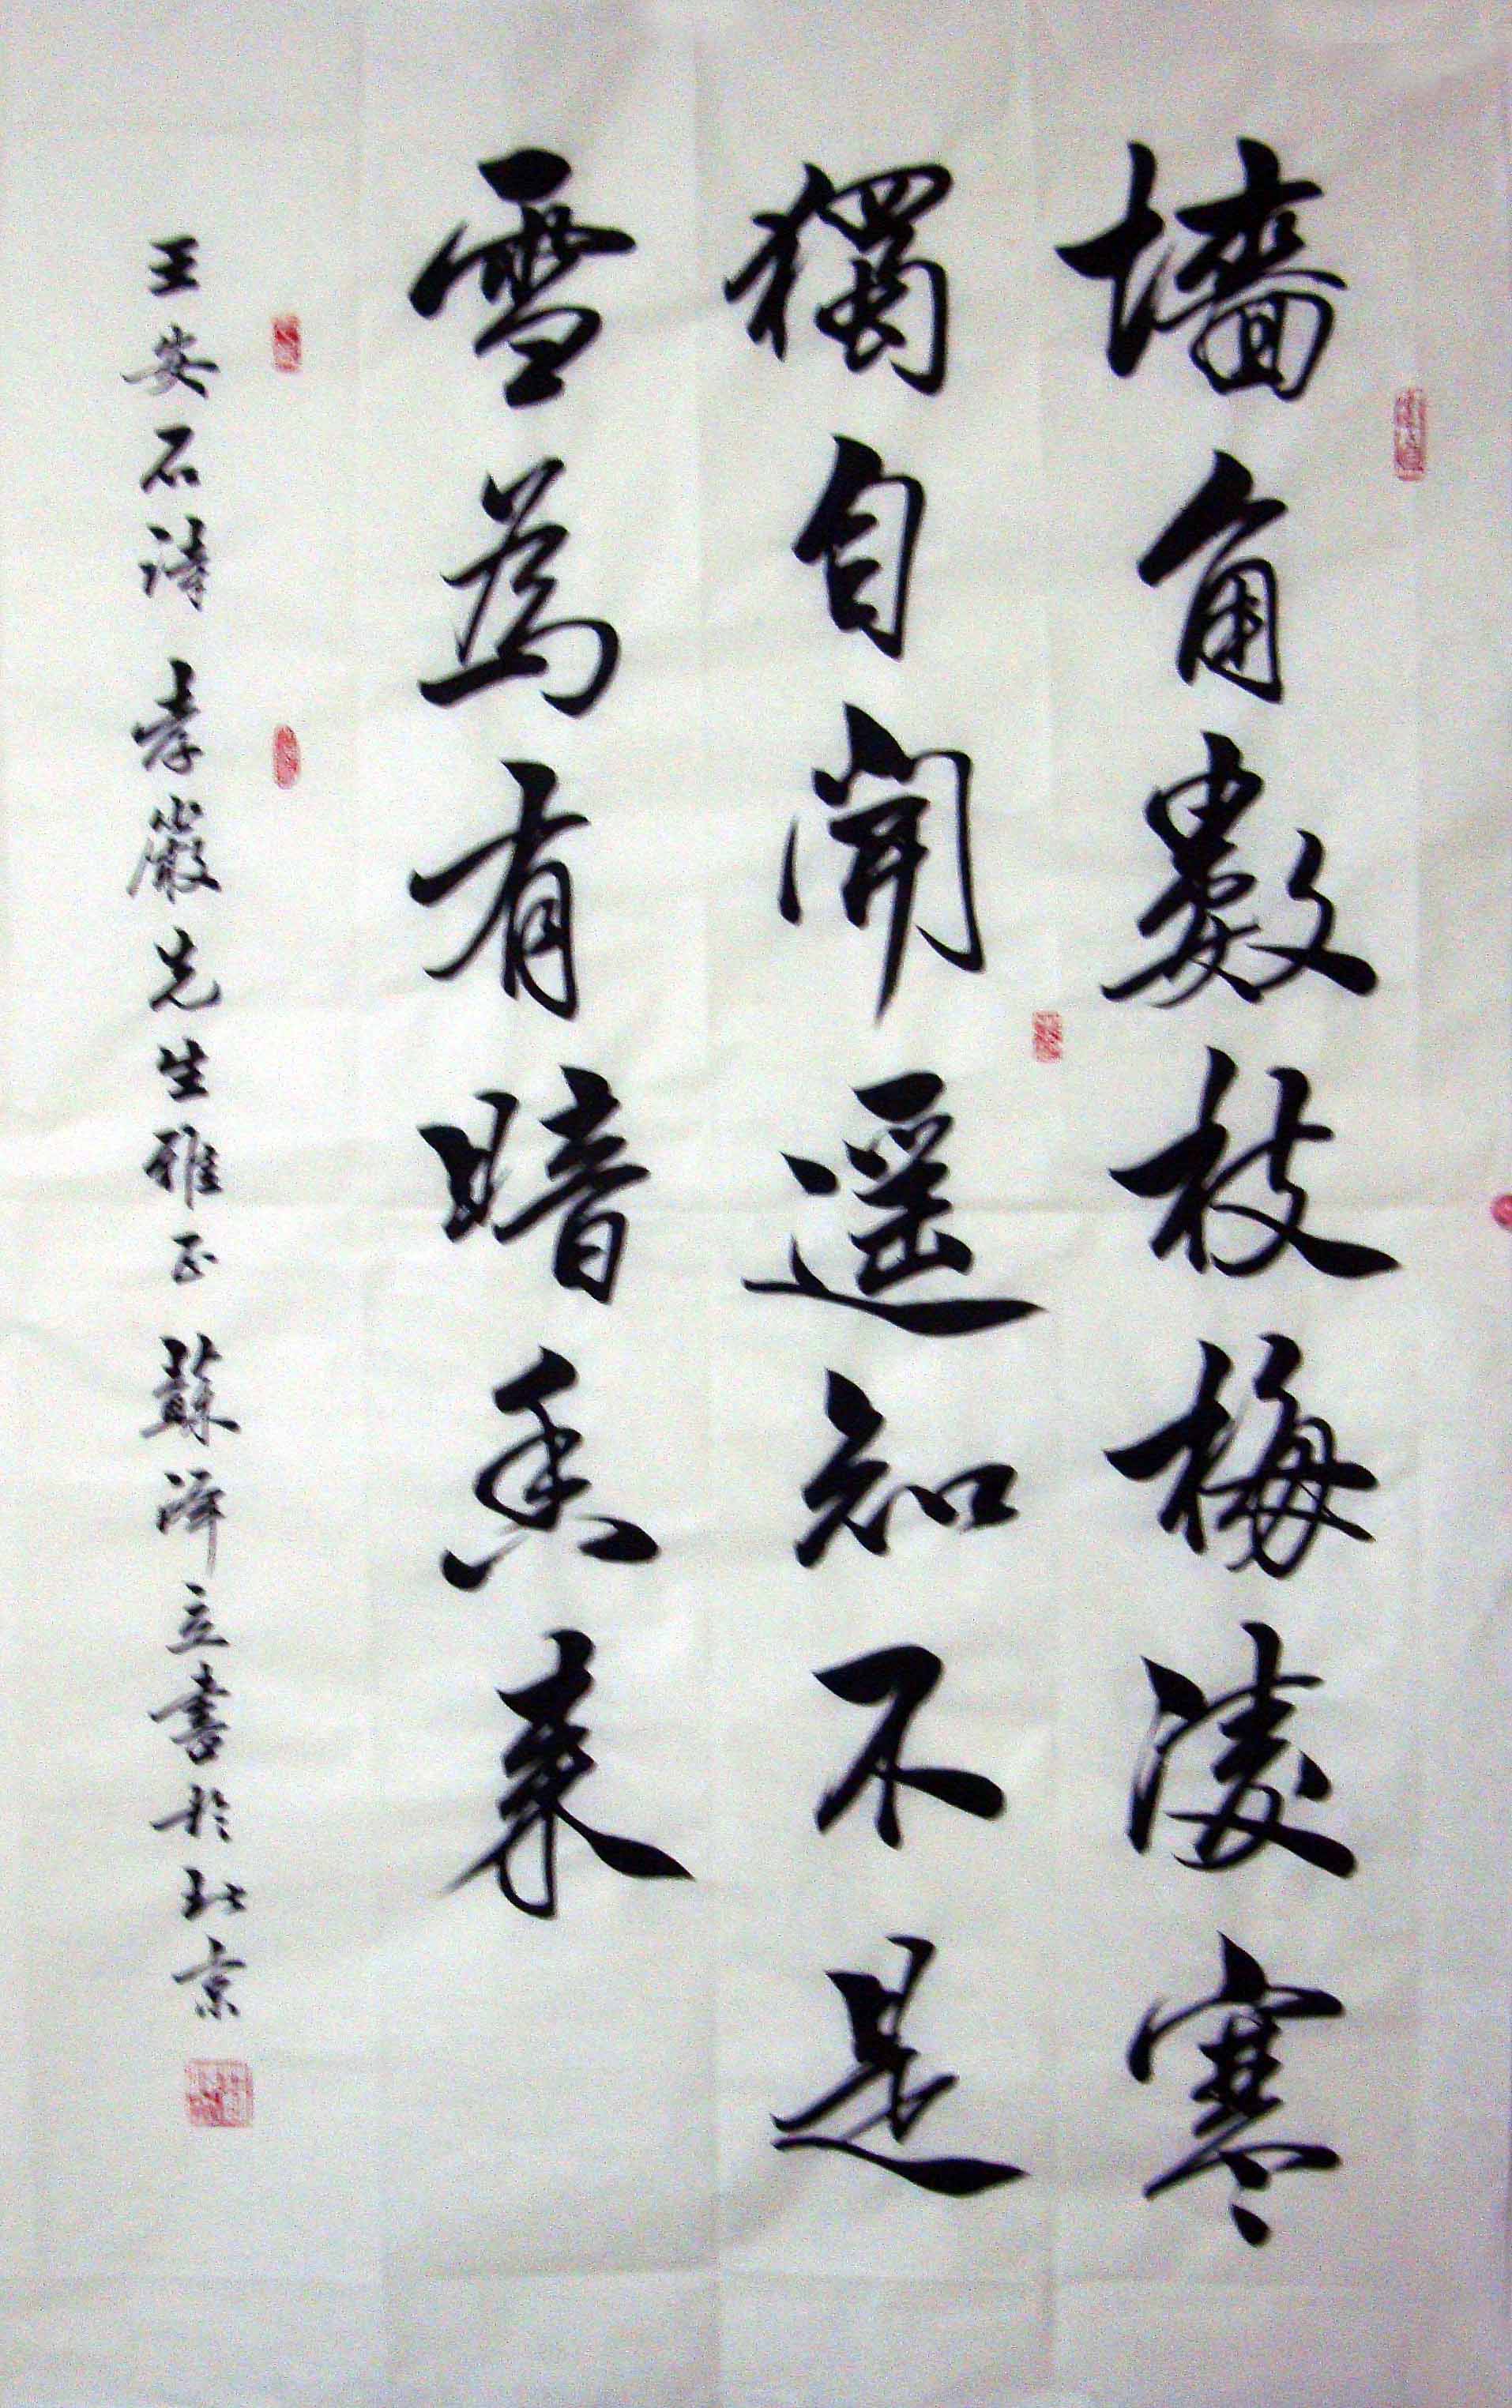 墻角數枝梅凌寒
獨自開遥知不是
雪為有暗香来
王安石詩 孝嚴先生雅正 蘇澤立書於北京